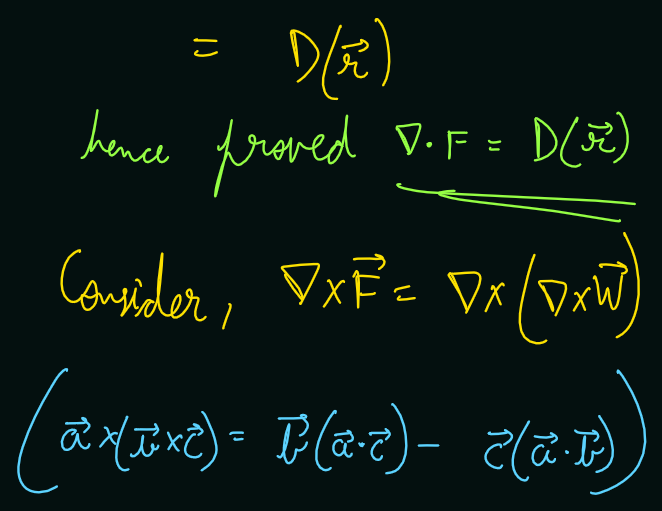 = D(r⃗)
hence proved ∇·F = D(r⃗)
Consider, ∇×F⃗ = ∇×(∇×W⃗)
(a⃗×(b⃗×c⃗) = b⃗(a⃗·c⃗) − c⃗(a⃗·b⃗))